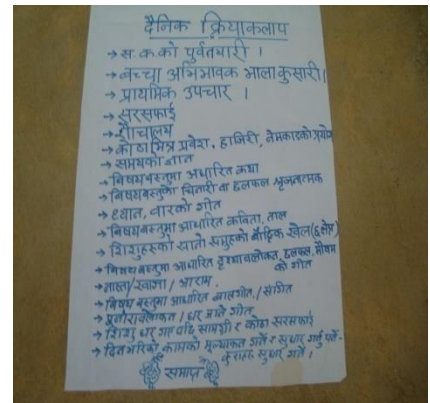 दैनिक क्रियाकलाप
→ स.क.को पुर्वतयारी ।
→ बच्चा अभिभावक भालाकुसारी।
→ प्राथमिक उपचार ।
→ सरसफाई
→ शौचालय
→ कोठाभित्र प्रवेश, हाजिरी, नेमकार्डको प्रयोग
→ समयको गीत
→ बिषयबस्तुमा आधारित कथा
→ बिषयबस्तुका चित्तारी वा छलफल श्रृजनात्मक
→ ध्यान, वारको गीत
→ बिषयबस्तुमा आधारित कविता, ताल
→ शिशुहरुको सातो समुहको बौद्धिक खेल (६ क्षेत्र)
→ बिषयबस्तुमा आधारित दृश्यावलोकन, छलफल, मौसम
को गीत
→ नास्ता/खाजा/आराम.
→ बिषय बस्तुमा आधारित बालगीत./संगित
→ पुनरावलोकन/घर जाने गीत
→ शिशु घर गए पछि सामग्री र कोठा सरसफाई
→ दिनभरिको कामको मूल्याङ्कन गर्ने र सुधार गर्नु पर्ने-
कुराहरु सुधार गर्ने।
समाप्त